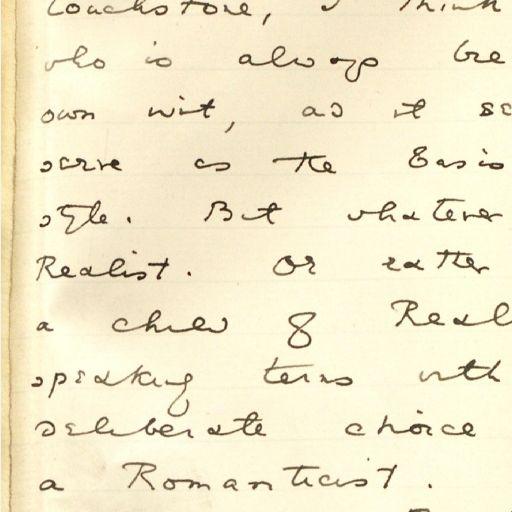 Touchstone, I think
who is always bre
own wit, as it se
serve as the basis
style. But whatever
Realist. Or rather
a child of Real
speaking terms with
deliberate choice
a Romanticist.